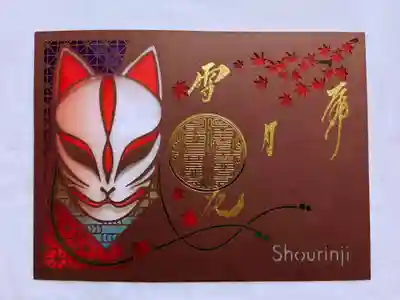 雪月花
Shourinji